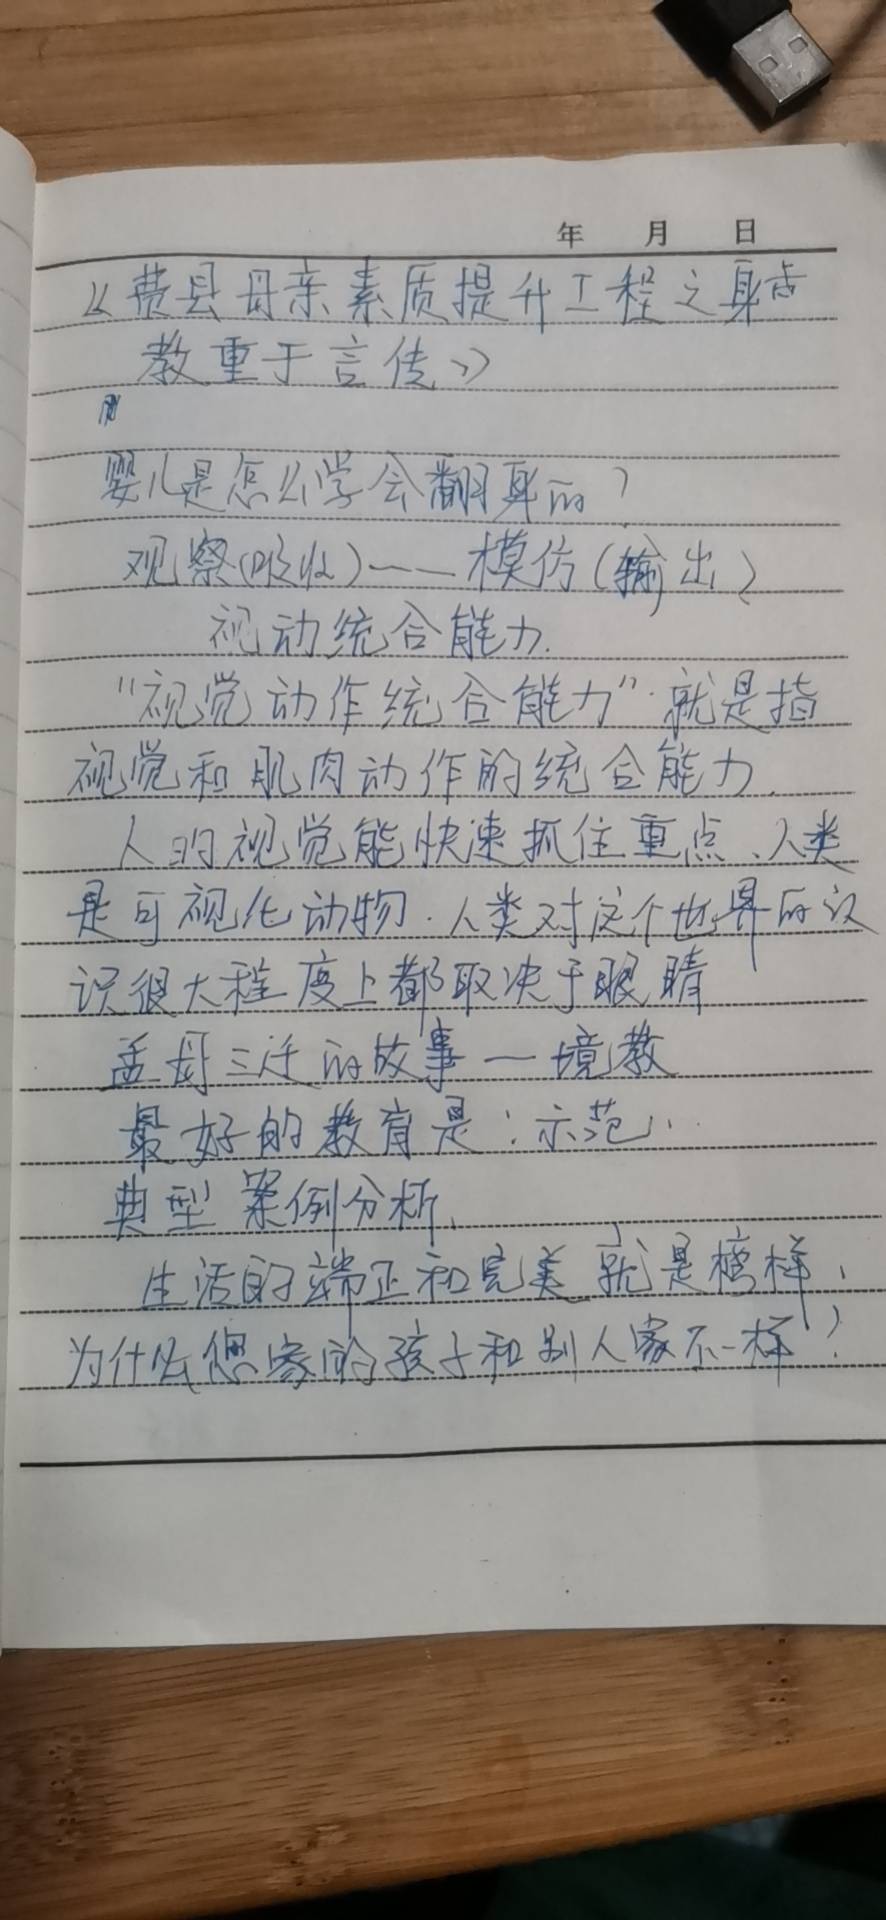 年 月 日
《费县母亲素质提升工程之身
教重于言传》
婴儿是怎么学会翻身的?
观察(吸收)——模仿(输出)
视动统合能力.
“视觉动作统合能力”.就是指
视觉和肌肉动作的统合能力.
人的视觉能快速抓住重点、人类
是可视化动物.人类对这个世界的认
识很大程度上都取决于眼睛
孟母三迁的故事—境教
最好的教育是:示范!
典型案例分析、
生活的端正和完美就是榜样、
为什么您家的孩子和别人家不一样?